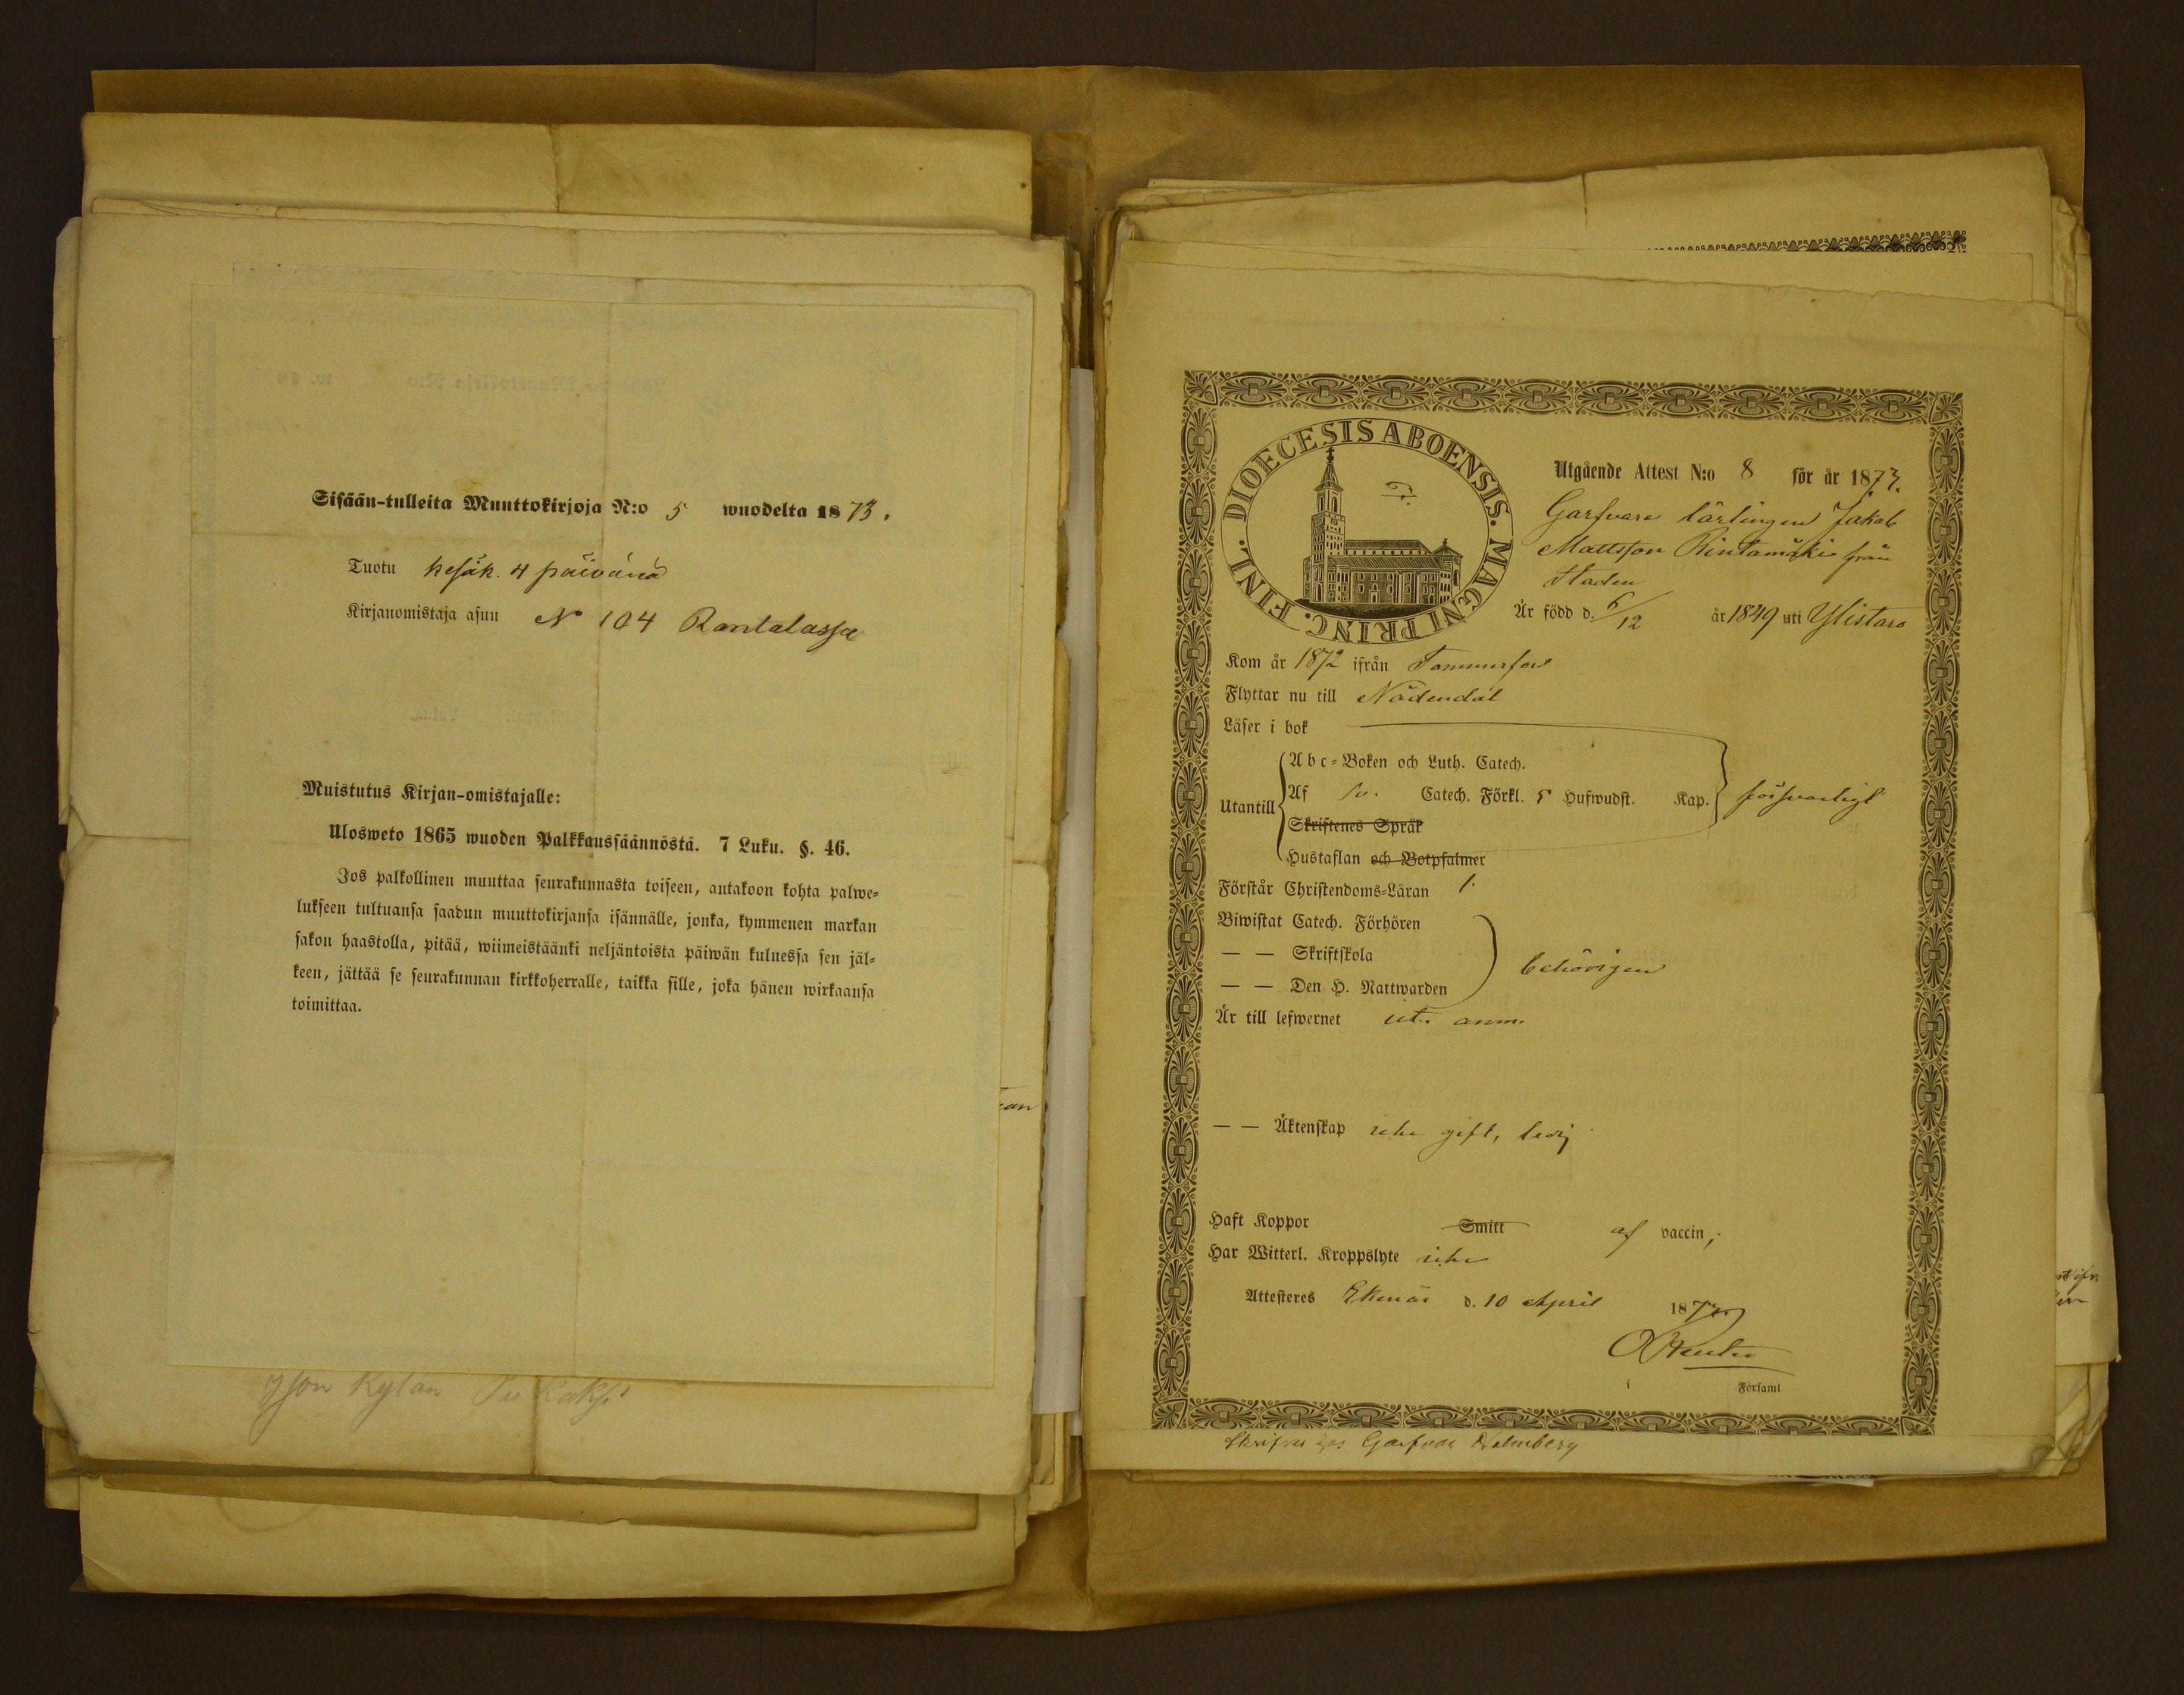 Sisään-tulleita Muuttokirjoja N:o 5 wuodelta 1873.
Tuotu kesäk. 4 päivänä
Kirjanomistaja asuu N 104 Rantalassa
Muistutus Kirjan-omistajalle:
Ulosweto 1865 wuoden Palkkaussäännöstä. 7 Luku. §. 46.
Jos palkollinen muuttaa seurakunnasta toiseen, antakoon kohta palwe=
lukseen tultuansa saadun muuttokirjansa isännälle, jonka, kymmenen markan
sakon haastolla, pitää, wiimeistäänki neljäntoista päiwän kuluessa sen jäl=
keen, jättää se seurakunnan kirkkoherralle, taikka sille, joka hänen wirkaansa
toimittaa.
Kylan
DIOECESIS ABOENSIS. MAGNI PRINC. FINL.
Utgående Attest N:o 8 för år 1873.
Garfvare lärlingen Jakob
Mattsson Rintamäki från
Staden
Är född d. 6/12 år 1849 uti Ylistaro
Kom år 1872 ifrån Tammerfors
Flyttar nu till Nådendal
Läser i bok
Utantill
Abc=Boken och Luth. Catech.
Af Sv. Catech. Förkl. 5 Hufwudst. Kap. försvarligt
Skriftenes Språk
Hustaflan och Botpsalmer
Förstår Christendoms=Läran
Biwistat Catech. Förhören
— — Skriftskola
— — Den H. Nattwarden
behörigen
Är till lefwernet ut. anm.
— — Äktenskap icke gift, ledig
Haft Koppor Smitt af vaccin;
Har Witterl. Kroppslyte icke
Attesteres Ekenäs d. 10 April 1873
i Församl
Skrifven hos Garfvar Holmberg